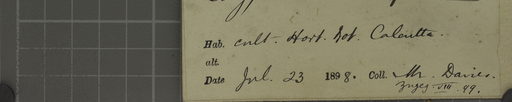 Hab. cult. Hort. Bot. Calcutta.
alt.
Date Jul. 23 1898. Coll. Mr. Davies.
VIII. 99.